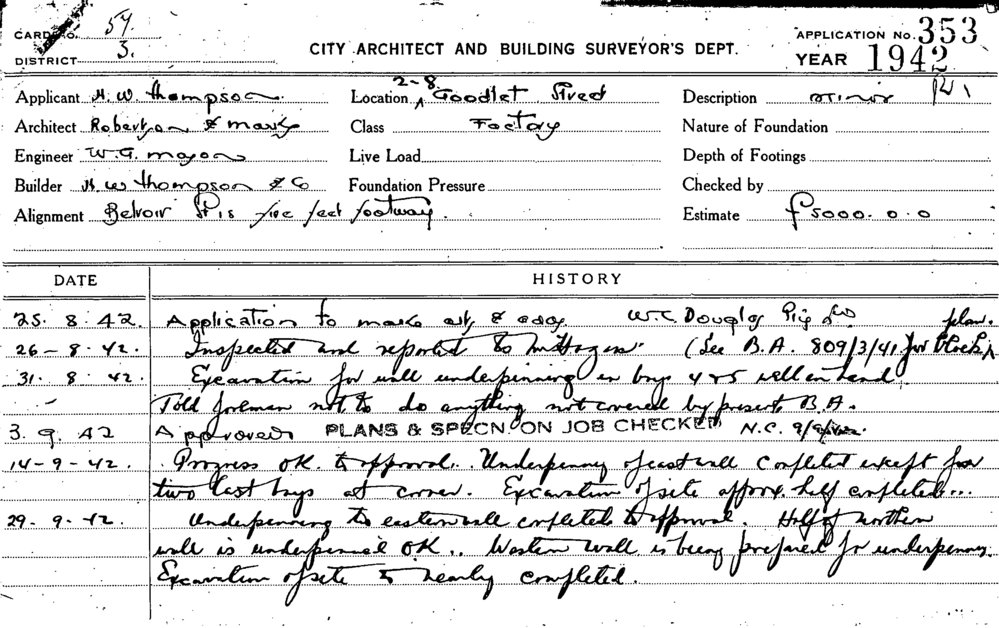 CARD No. 57
DISTRICT 3.
CITY ARCHITECT AND BUILDING SURVEYOR'S DEPT.
APPLICATION No. 353
YEAR 1942
Applicant H. W. Thompson
Location 2-8 Goodlet Street
Description minor
Architect Robertson & Marks
Class Factory
Nature of Foundation
Engineer W. G.
Live Load
Depth of Footings
Builder H. W Thompson & Co
Foundation Pressure
Checked by
Alignment Belvoir St is five feet footway.
Estimate £5000. 0. 0
DATE
HISTORY
25. 8. 42. Application to make alts & adds W. C. Douglas Pty Ltd
26-8-42. Inspected and reported to (See B.A. 809/3/41 for block plan.
31. 8. 42. Excavation for wall underpinning in bays 4 & 5 well in hand
Told foreman not to do anything not covered by present B.A.
3. 9. 42 Approved PLANS & SPECN. ON JOB CHECKED N.C.
14-9-42. Progress OK. to approval.. Underpinng of east wall completed except for
two last bays at corner. Excavation of site approx. half completed...
29-9-42. Underpinning to eastern wall completed to approval. Half of northern
wall is underpinned OK.. Western wall is being prepared for underpinng.
Excavation of site is nearly completed.